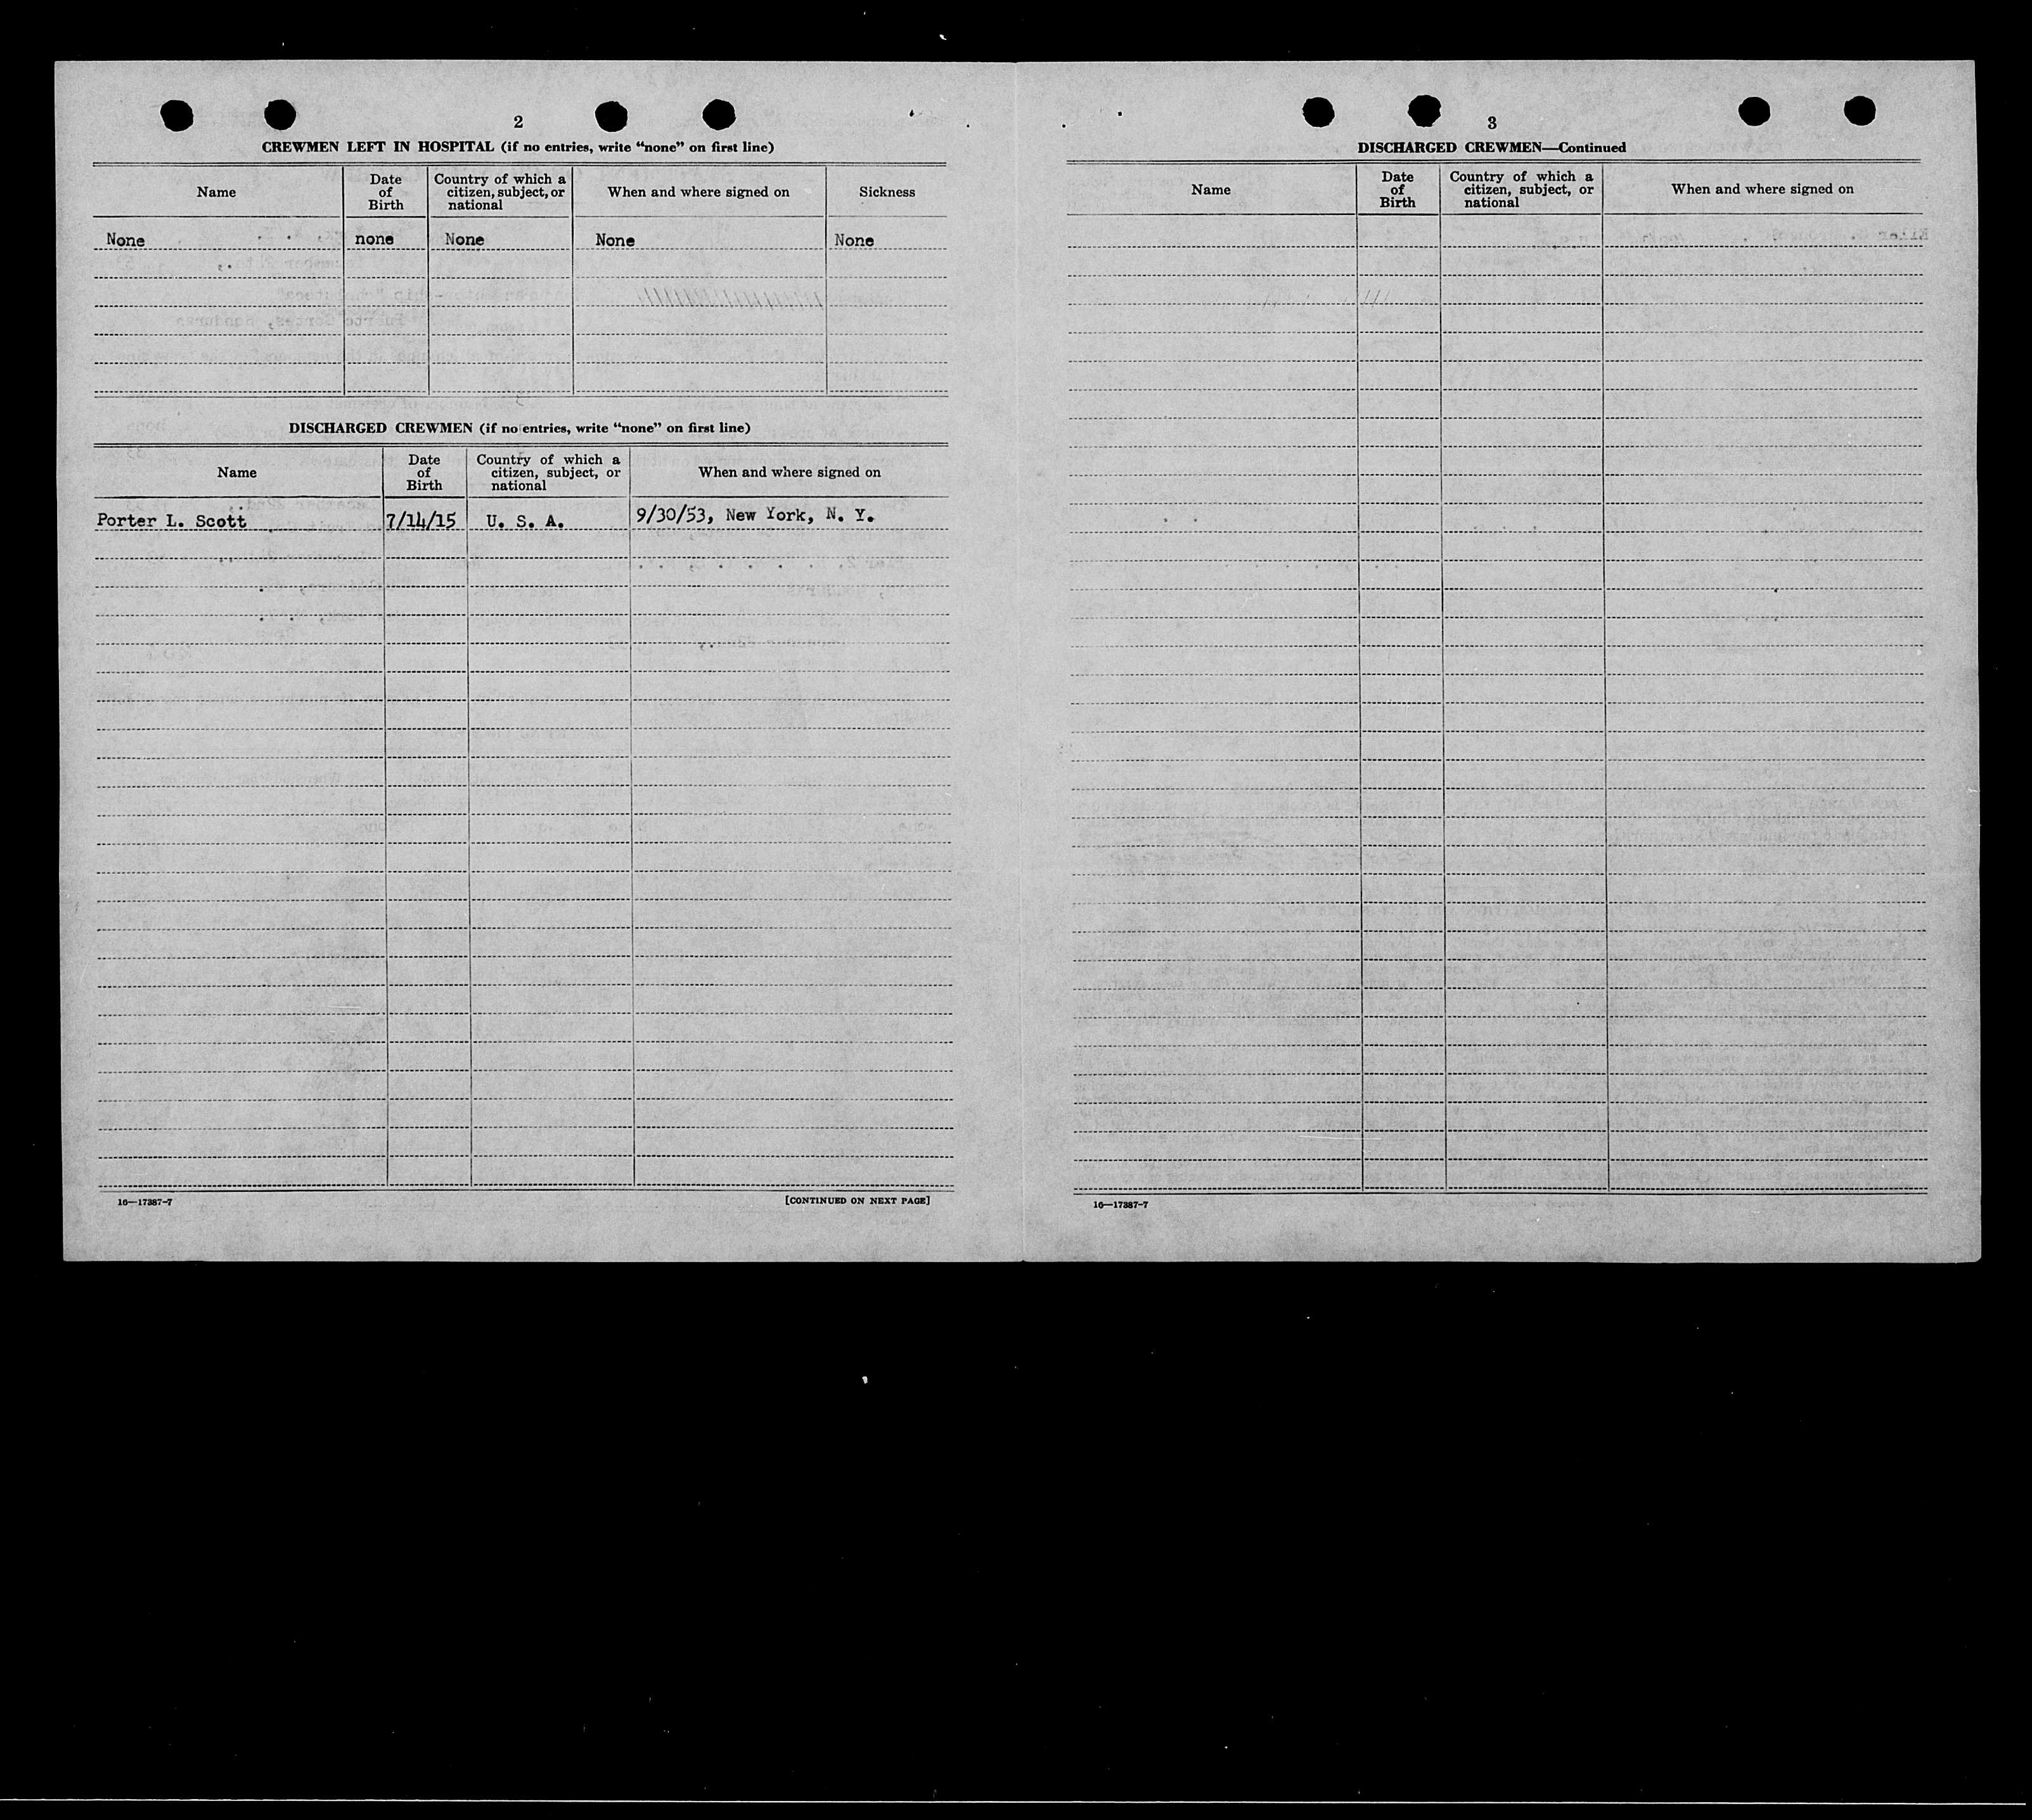 2
CREWMEN LEFT IN HOSPITAL (if no entries, write “none” on first line)
Name
Date of Birth
Country of which a citizen, subject, or national
When and where signed on
Sickness
None none None None None
DISCHARGED CREWMEN (if no entries, write “none” on first line)
Name
Date of Birth
Country of which a citizen, subject, or national
When and where signed on
Porter L. Scott 7/14/15 U. S. A. 9/30/53, New York, N. Y.
16—17387-7
[CONTINUED ON NEXT PAGE]
3
DISCHARGED CREWMEN—Continued
Name
Date of Birth
Country of which a citizen, subject, or national
When and where signed on
16—17387-7